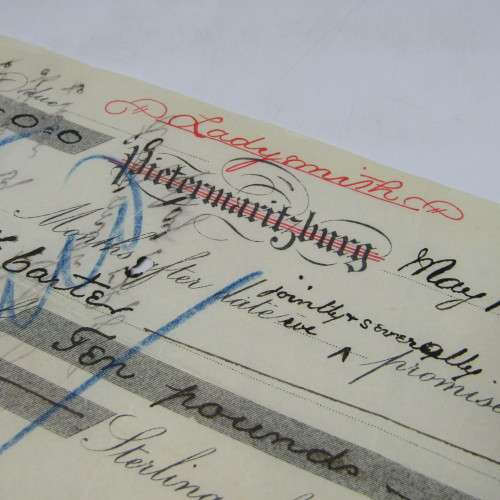 0=0=0
Ladysmith
Pietermaritzburg May
Months after date we jointly & severally promise
Carter
Ten pounds
Sterling